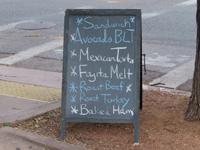 *Sandwich*
*Avocado BLT
*Mexican Torta
*Fajita Melt
*Roast Beef*
*Roast Turkey
*Baked Ham